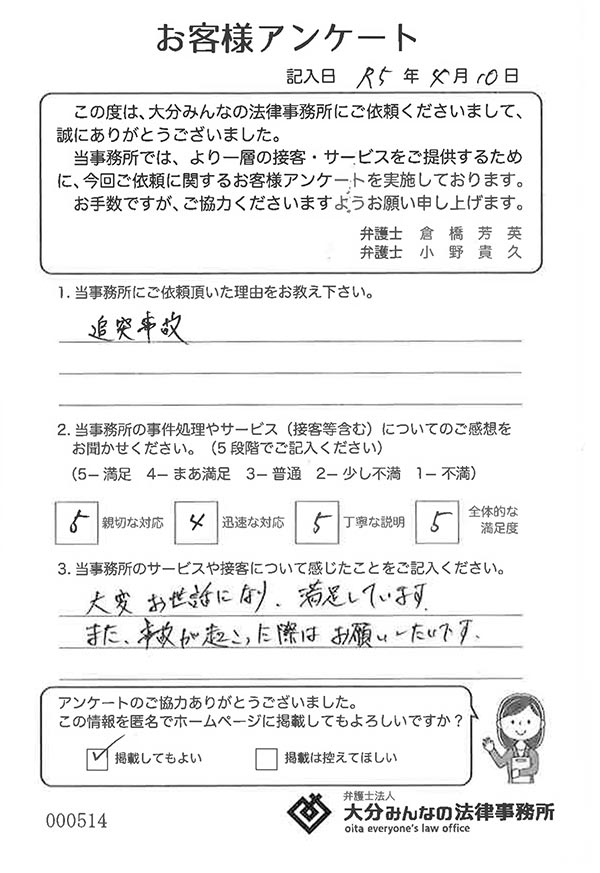 お客様アンケート
記入日 R5年4月10日
この度は、大分みんなの法律事務所にご依頼くださいまして、
誠にありがとうございました。
当事務所では、より一層の接客・サービスをご提供するため
に、今回ご依頼に関するお客様アンケートを実施しております。
お手数ですが、ご協力くださいますようお願い申し上げます。
弁護士 倉橋芳英
弁護士 小野貴久
1. 当事務所にご依頼頂いた理由をお教え下さい。
追突事故
2. 当事務所の事件処理やサービス（接客等含む）についてのご感想を
お聞かせください。（5段階でご記入ください）
（5－満足 4－まあ満足 3－普通 2－少し不満 1－不満）
5 親切な対応 4 迅速な対応 5 丁寧な説明 5 全体的な
満足度
3. 当事務所のサービスや接客について感じたことをご記入ください。
大変お世話になり、満足しています。
また、事故が起こった際はお願いしたいです。
アンケートのご協力ありがとうございました。
この情報を匿名でホームページに掲載してもよろしいですか？
掲載してもよい 掲載は控えてほしい
000514
弁護士法人
大分みんなの法律事務所
oita everyone's law office